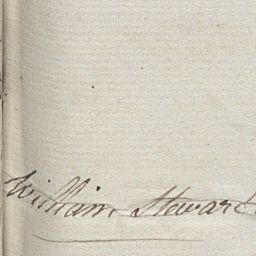 William Steward